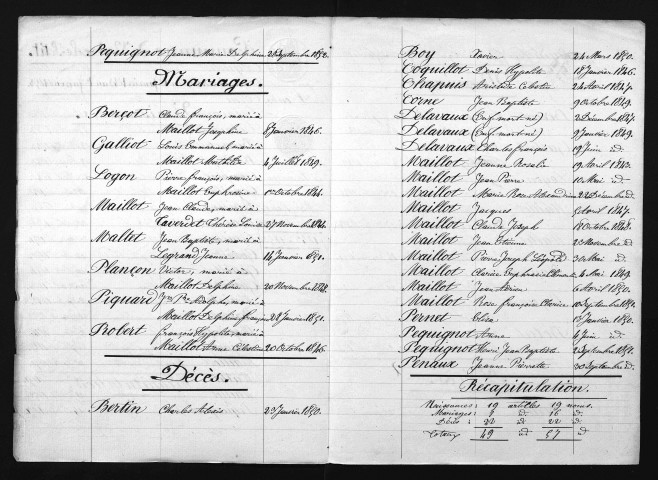 Pequignot Jeanne Marie Delphine 2 Septembre 1852
Mariages.
Berçot Claude françois, marié à
Maillot Josephine 8 Janvier 1846.
Galliot Louis Emmanuel, marié à
Maillot Mathilde 4 Juillet 1849.
Logon Pierre françois, marié à
Maillot Euphrosine 1er Octobre 1844.
Maillot Jean Claude, marié à
Taverdet Thérèse Louise 27 Novembre 1844.
Mallet Jean Baptiste, marié à
Legrand Jeanne 14 Janvier 1851.
Plançon Victor, marié à
Maillot Delphine 20 Novembre 1848.
Piquard Jn Pre Adolphe, marié à
Maillot Delphine françoise 22 Janvier 1851.
Robert françois Hypolite, marié à
Maillot Anne Célestine 20 Octobre 1846.
Décès.
Bertin Charles Alexis 23 Janvier 1850.
Boy Xavier 24 Mars 1850.
Coquillot Denis Hypolite 18 Janvier 1846.
Chapuis Aristide Célestin 24 Mars 1847.
Corne Jean Baptiste 9 Octobre 1849.
Delavaux (Enf. mort-né) 2 Décembre 1847.
Delavaux (Enf. mort-né) 9 Janvier 1849.
Delavaux Charles françois 19 Juin id
Maillot Jeanne Rosalie 19 Avril 1842.
Maillot Jean Pierre 10 Mai id
Maillot Marie Rose Alexandrine 22 Décembre id.
Maillot Jacques 5 Avril 1847.
Maillot Claude Joseph 18 Octobre 1848.
Maillot Jean Etienne 20 Novembre id
Maillot Pierre Joseph Léopold 30 Mai id
Maillot Clarisse Euphrasie Clémentine 4 Mai 1849.
Maillot Jean Adrien 6 Avril 1850.
Maillot Rose françoise Clarisse 10 Septembre 1850.
Pernet Elisa 15 Janvier 1850.
Pequignot Anne 4 Juin id
Pequignot Henri Jean Baptiste 2 Septembre 1851.
Penaux Jeanne Pierrette 30 Septembre id
Récapitulation.
Naissances: 19 articles 19 noms.
Mariages: 8 id 16 id
Décès: 22 id 22 id
Totaux 49 id 57 id